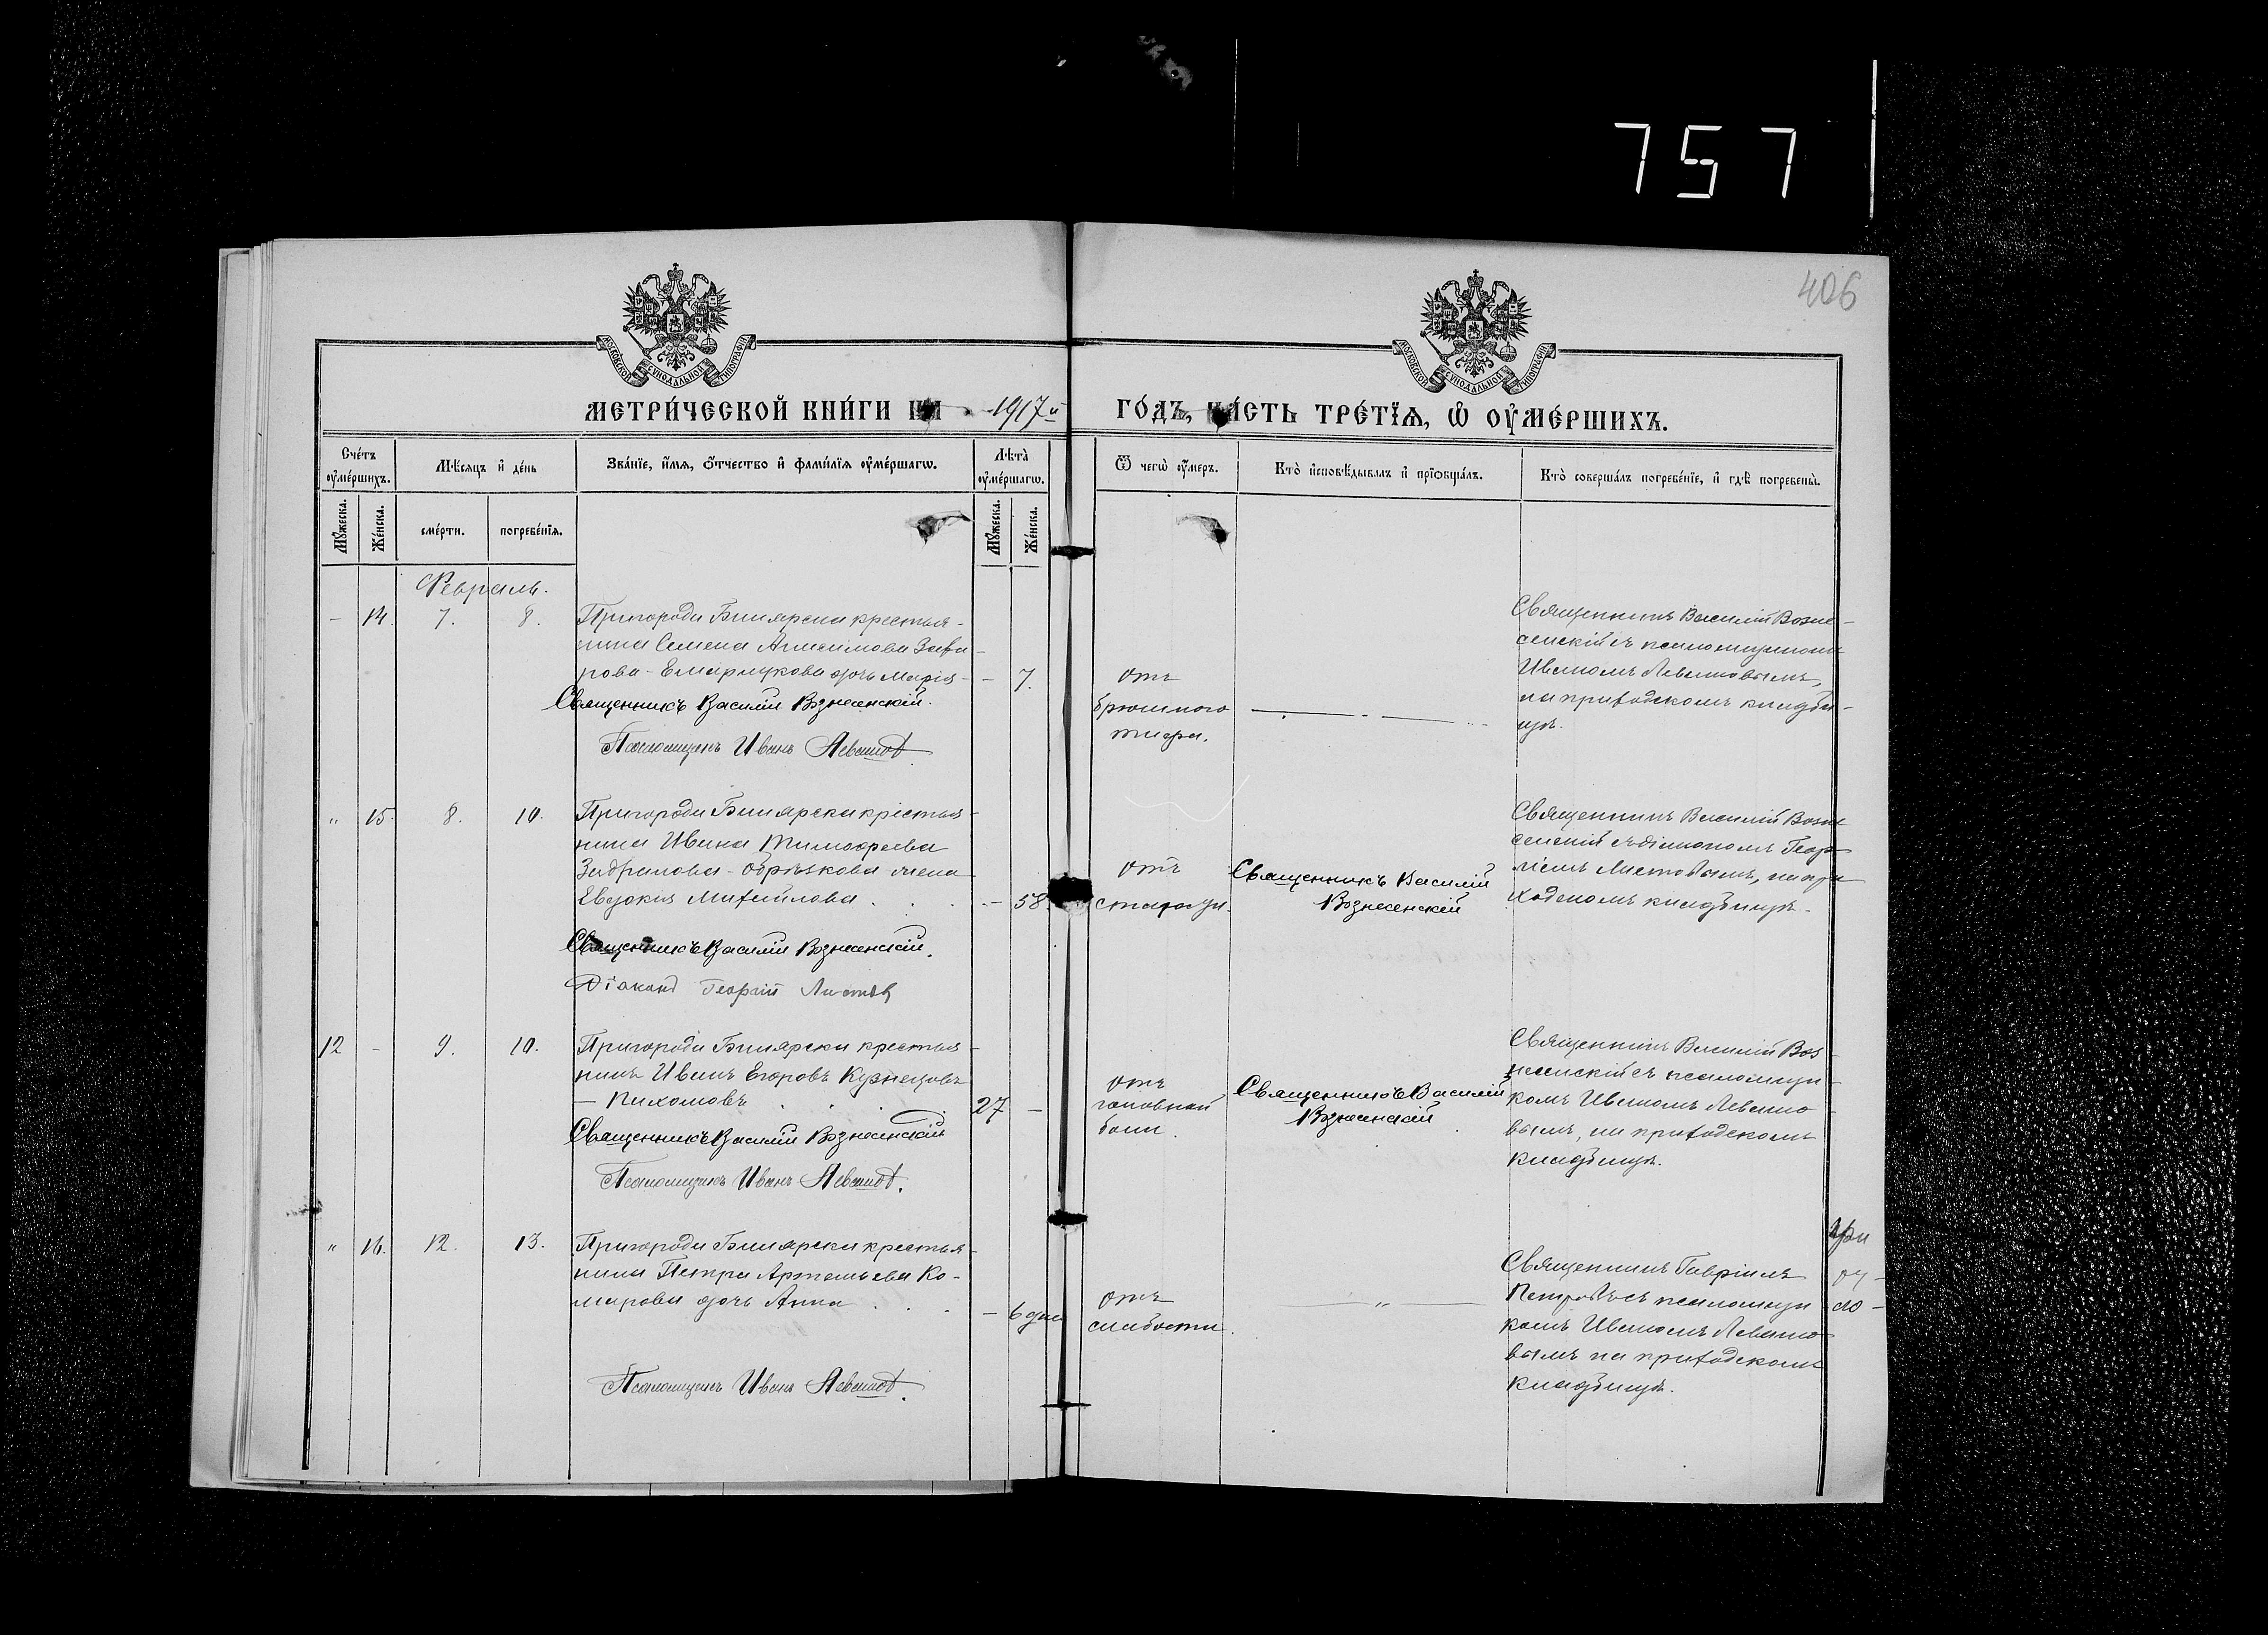 757
406
МОСКОВСКОЙ СУНОДАЛЬНОЙ ТИПОГРАФІИ
МОСКОВСКОЙ СУНОДАЛЬНОЙ ТИПОГРАФІИ
МЕТРИ́ЧЕСКОЙ КНИ́ГИ НА 1917й ГО́ДЪ, ЧА́СТЬ ТРЕ́ТЇѦ, Ѡ҆ ОУ҆МЕ́РШИХЪ.
Сче́тъ оу҆ме́ршихъ.
Мѣ́сяцъ и҆ де́нь
Зва́нїе, и҆́мѧ, ѻ҆́тчество и҆ фами́лїѧ оу҆ме́ршагѡ.
Лѣ́та оу҆ме́ршагѡ.
Ѿ чегѡ̀ оу҆́меръ.
Кто̀ и҆сповѣ́дывалъ и҆ прїѡбща́лъ.
Кто̀ соверша́лъ погребе́нїе, и҆ гдѣ̀ погребены̀.
Мꙋ́жеска.
Же́нска.
сме́рти.
погребе́нїѧ.
Мꙋ́жеска.
Же́нска.
Февраль.
- 14. 7. 8.
Пригорода Билярска крестья-
нина Семена Анисимова
дочь Марія - - 7.
Священникъ Василій Вознесенскій.
Псаломщикъ Иванъ Левашов
отъ
брюшного
тифа.
Священникъ Василій Возне-
сенскій съ псаломщикомъ
Иваномъ Левашовымъ,
на приходскомъ кладби-
щѣ.
" 15. 8. 10.
Пригорода Билярска крестья-
нина Ивана Тимофеева
Обрѣзкова жена
Евдокія Михайлова . . . - 58.
Священникъ Василій Вознесенскій.
Діаконъ Георгій Листов
отъ
старости.
Священникъ Василій
Вознесенскій
Священникъ Василій Возне
сенскій съ діакономъ Геор-
гіемъ Листовымъ, на при
ходскомъ кладбищѣ.
12 - 9. 10.
Пригорода Билярска крестья-
нинъ Иванъ Егоровъ Кузнецовъ
- Пихомовъ . . . 27 -
Священникъ Василій Вознесенскій
Псаломщикъ Иванъ Левашов.
отъ
головной
боли.
Священникъ Василій
Вознесенскій
Священникъ Василій Воз-
несенскій съ псаломщи-
комъ Иваномъ Левашо-
вымъ, на приходскомъ
кладбищѣ.
" 16. 12. 13.
Пригорода Билярска крестья-
нина Петра Артемьева Ко-
марова дочь Анна . . . - 6 дне
Псаломщикъ Иванъ Левашов.
отъ
слабости.
"
Священникъ Гавріилъ
Петровъ съ псаломщи-
комъ Иваномъ Левашо-
вымъ на приходскомъ
кладбищѣ.